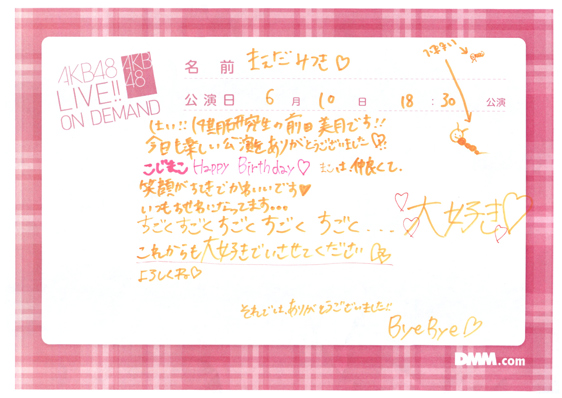 AKB48
LIVE!!
ON DEMAND
AKB
48
名前 まえだみつき♡
公演日 6月10日 18:30 公演
はい!! 14期研究生の前田美月です!!
今日も楽しい公演をありがとうございました
こじまこ Happy Birthday♡ まこは仲良くて、
笑顔がすきでかわいいです♥
いつもおせわになってます...
すごくすごくすごくすごくすごく...
大好き♡
これからも大好きでいさせてください
よろしくね♡
それでは、ありがとうございました!!
Bye Bye♡
DMM.com